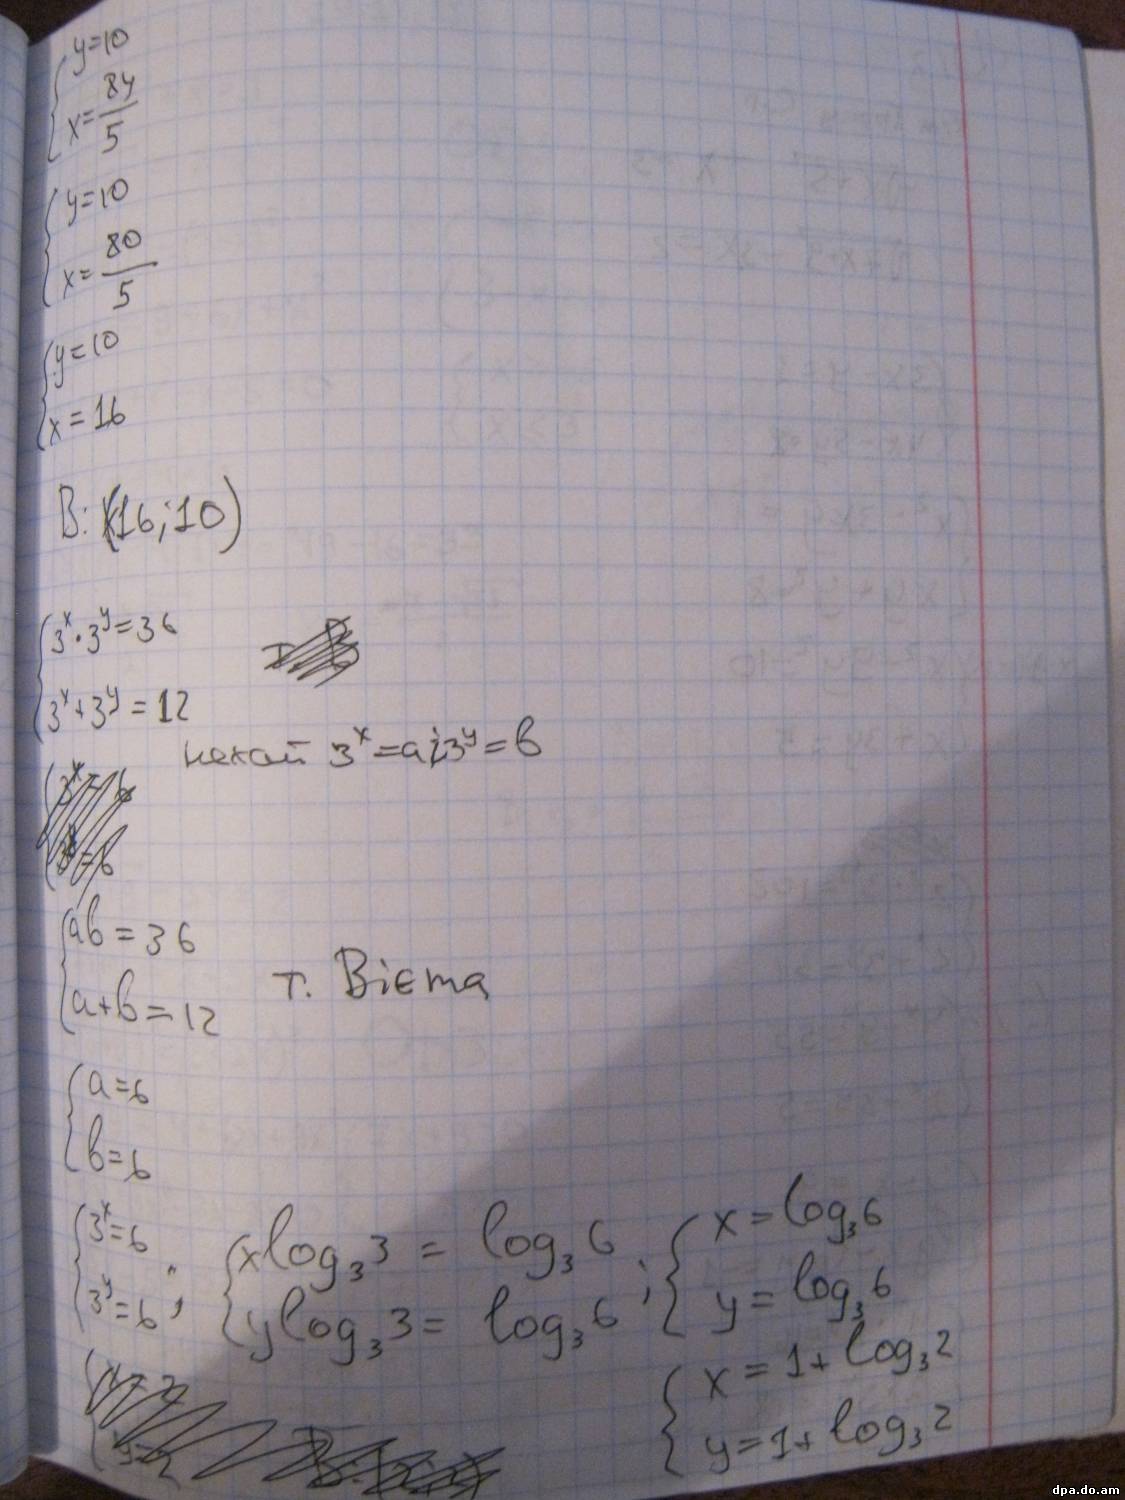 y=10
x=84/5
y=10
x=80/5
y=10
x=16
В: (16;10)
3^x·3^y=36
3^x+3^y=12
нехай 3^x=a; 3^y=в
aв=36
a+в=12
т. Вієта
a=6
в=6
3^x=6; xlog₃3=log₃6; x=log₃6
3^y=6 ylog₃3=log₃6 y=log₃6
x=1+log₃2
y=1+log₃2
dpa.do.am